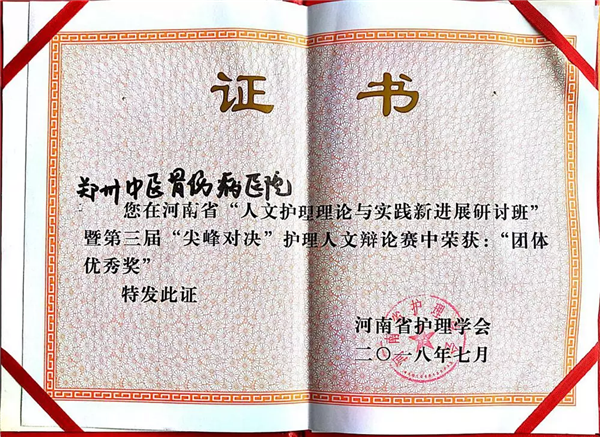 证书
郑州中医骨伤病医院
您在河南省“人文护理理论与实践新进展研讨班”
暨第三届“尖峰对决”护理人文辩论赛中荣获：“团体
优秀奖”
特发此证
河南省护理学会
二〇一八年七月
河南省护理学会